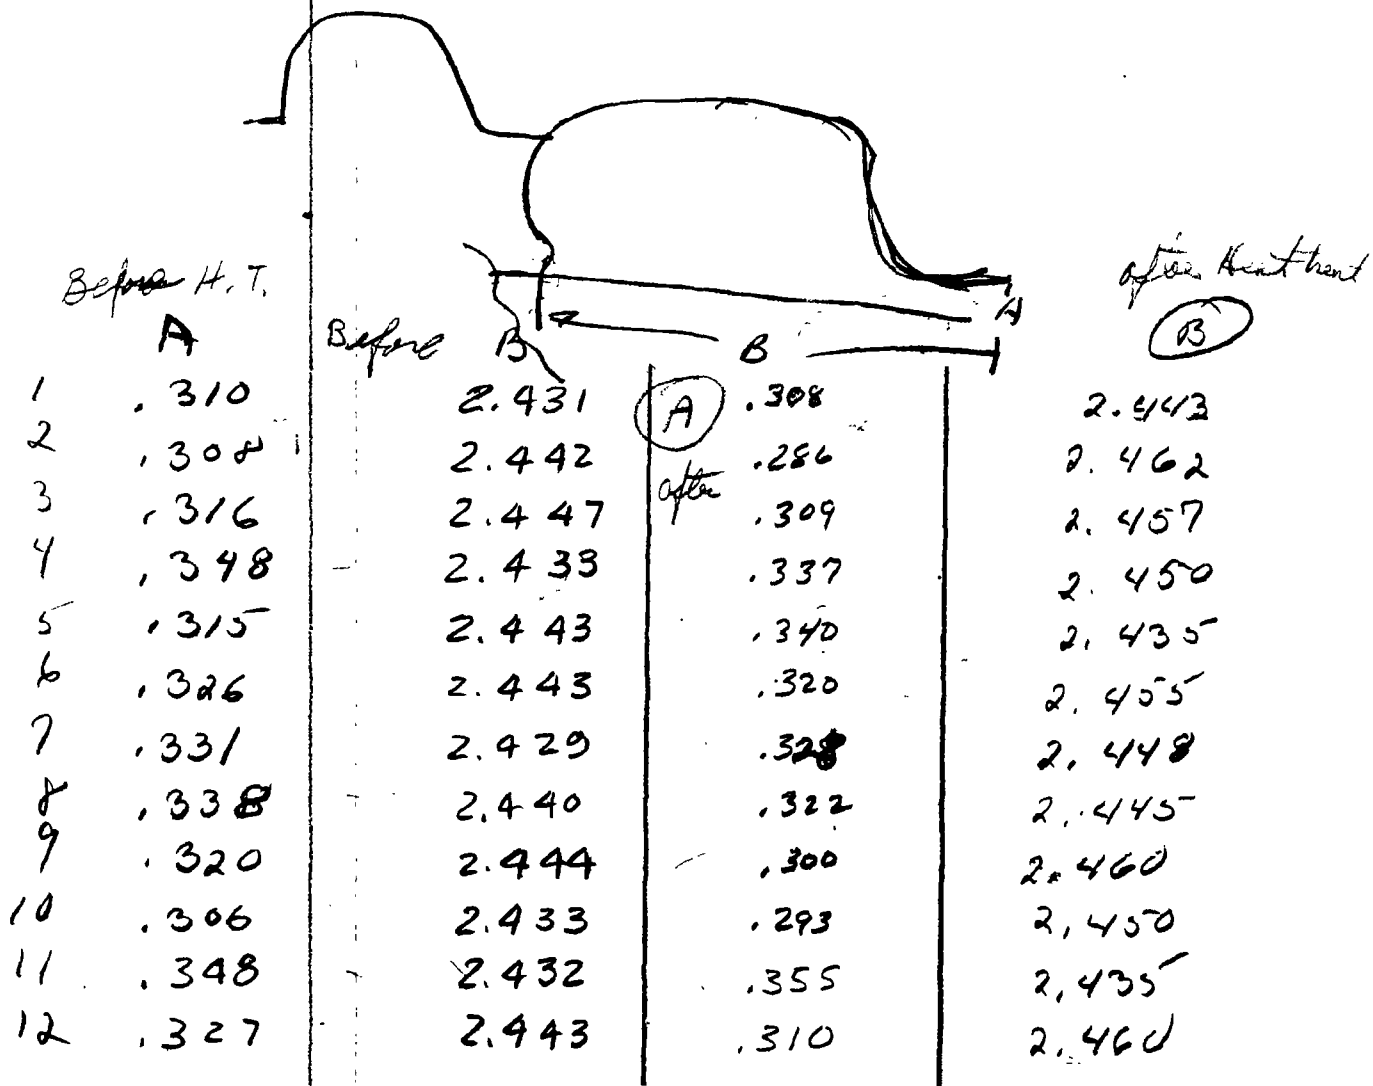 Before H.T. after Heat treat
A
A Before B B B
1 .310 2.431 A .308 2.443
2 .308 2.442 .286 2.462
after
3 .316 2.447 .309 2.457
4 .348 2.433 .337 2.450
5 .315 2.443 .340 2.435
6 .326 2.443 .320 2.455
7 .331 2.429 .328 2.448
8 .338 2.440 .322 2.445
9 .320 2.444 .300 2.460
10 .306 2.433 .293 2.450
11 .348 2.432 .355 2.435
12 .327 2.443 .310 2.460